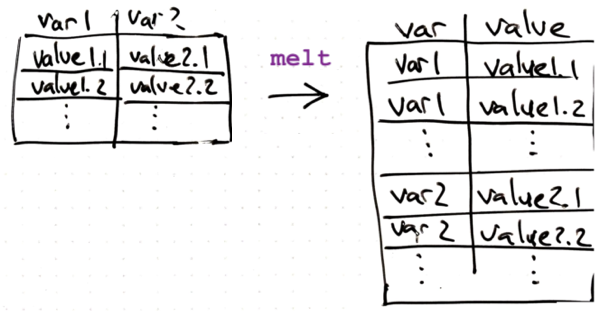 var1 var2
value1.1 value2.1
value1.2 value2.2
⋮ ⋮
melt
var value
var1 value1.1
var1 value1.2
⋮ ⋮
var2 value2.1
var2 value2.2
⋮ ⋮